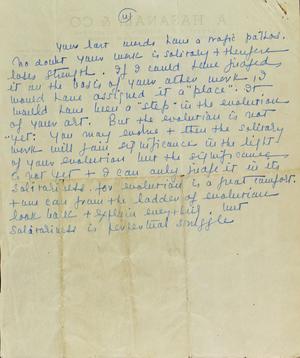 A HASANALI & CO
(4)
Your last words have a tragic pathos.
No doubt your work is solitary & therefore
loses strength. If I could have judged
it on the basis of your other work, I
would have assigned it a "place". It
would have been a "step" in the evolution
of your art. But the evolution is not
yet. You may evolve & then the solitary
work will gain significance in the light
of your evolution but the significance
is not yet & I can only judge it in its
solitariness. for evolution is a great comfort.
& one can from the ladder of evolution
look back & explain everything. but
solitariness is perpetual struggle